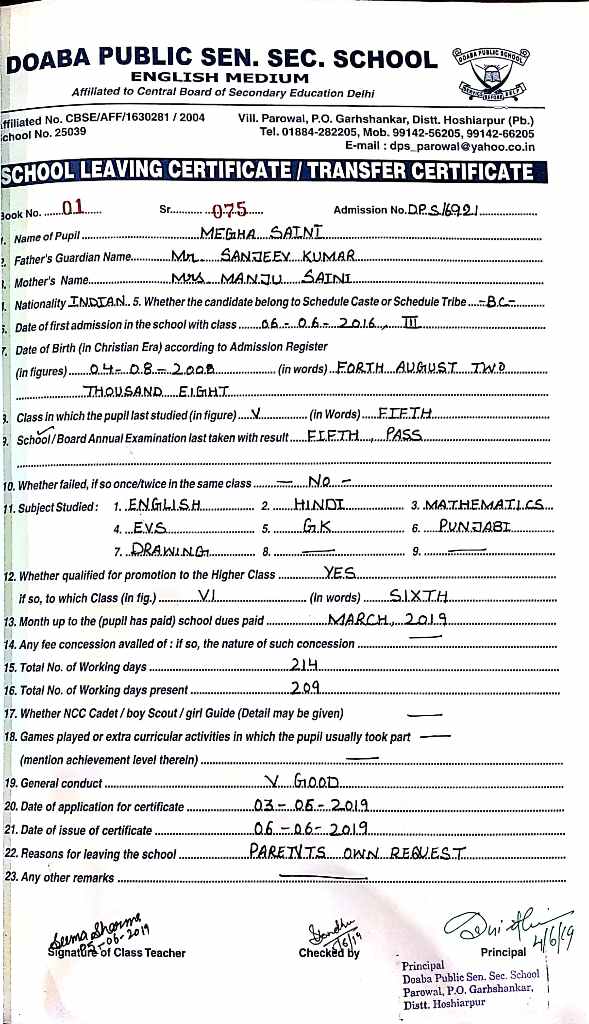 DOABA PUBLIC SEN. SEC. SCHOOL
ENGLISH MEDIUM
Affiliated to Central Board of Secondary Education Delhi
DOABA PUBLIC SCHOOL
SERVICE BEFORE SELF
ffiliated No. CBSE/AFF/1630281 / 2004
Vill. Parowal, P.O. Garhshankar, Distt. Hoshiarpur (Pb.)
chool No. 25039
Tel. 01884-282205, Mob. 99142-56205, 99142-66205
E-mail : dps_parowal@yahoo.co.in
SCHOOL LEAVING CERTIFICATE / TRANSFER CERTIFICATE
Book No. 01 Sr. 075 Admission No. DPS/6921
1. Name of Pupil MEGHA SAINI
2. Father's Guardian Name Mr. SANJEEV KUMAR
3. Mother's Name Mrs MANJU SAINI
4. Nationality INDIAN 5. Whether the candidate belong to Schedule Caste or Schedule Tribe -BC-
6. Date of first admission in the school with class 06-06-2016, III
7. Date of Birth (in Christian Era) according to Admission Register
(in figures) 04-08-2008 (in words) FORTH AUGUST TWO
THOUSAND EIGHT
8. Class in which the pupil last studied (in figure) V (in Words) FIFTH
9. School/Board Annual Examination last taken with result FIFTH, PASS
10. Whether failed, if so once/twice in the same class - No -
11. Subject Studied : 1. ENGLISH 2. HINDI 3. MATHEMATICS
4. EVS 5. G.K 6. PUNJABI
7. DRAWING 8. — 9. —
12. Whether qualified for promotion to the Higher Class YES
if so, to which Class (In fig.) VI (In words) SIXTH
13. Month up to the (pupil has paid) school dues paid MARCH, 2019
14. Any fee concession availed of : if so, the nature of such concession —
15. Total No. of Working days 214
16. Total No. of Working days present 209
17. Whether NCC Cadet / boy Scout / girl Guide (Detail may be given) —
18. Games played or extra curricular activities in which the pupil usually took part —
(mention achievement level therein) —
19. General conduct V GOOD
20. Date of application for certificate 03-06-2019
21. Date of issue of certificate 06-06-2019
22. Reasons for leaving the school PARENTS OWN REQUEST
23. Any other remarks —
Seema Sharma
05-06-2019
Signature of Class Teacher
Checked by
Principal 4/6/19
Principal
Doaba Public Sen. Sec. School
Parowal, P.O. Garhshankar,
Distt. Hoshiarpur